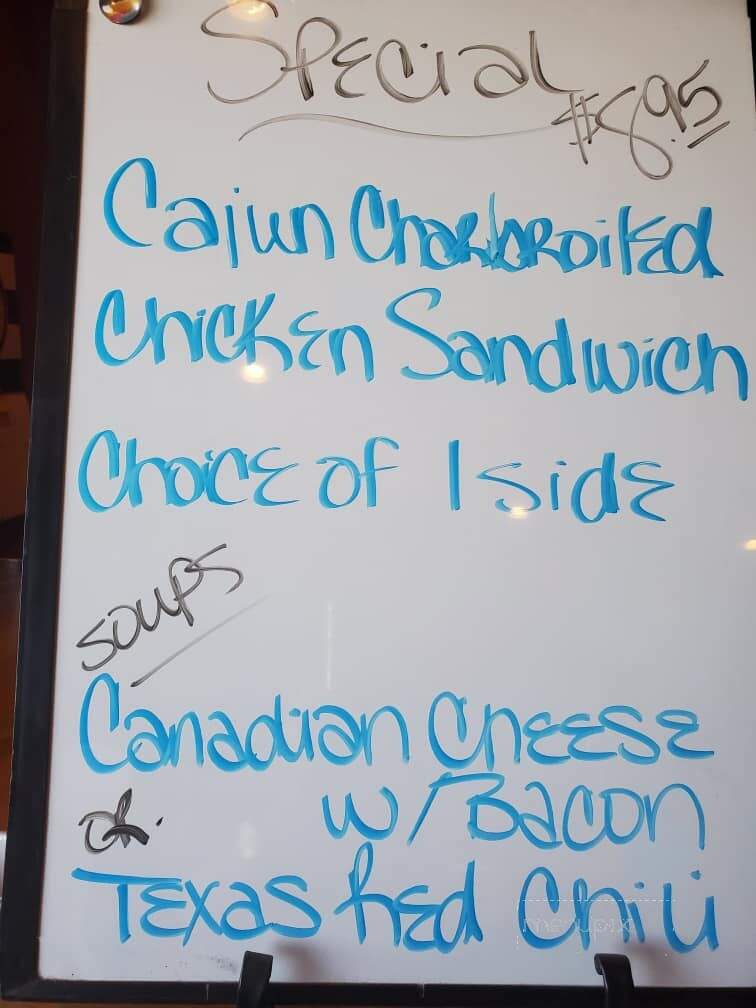 Special
$8.95
Cajun Charbroiled
Chicken Sandwich
Choice of 1 side
Soups
Canadian Cheese
w/Bacon
or
Texas Red Chili
menupix